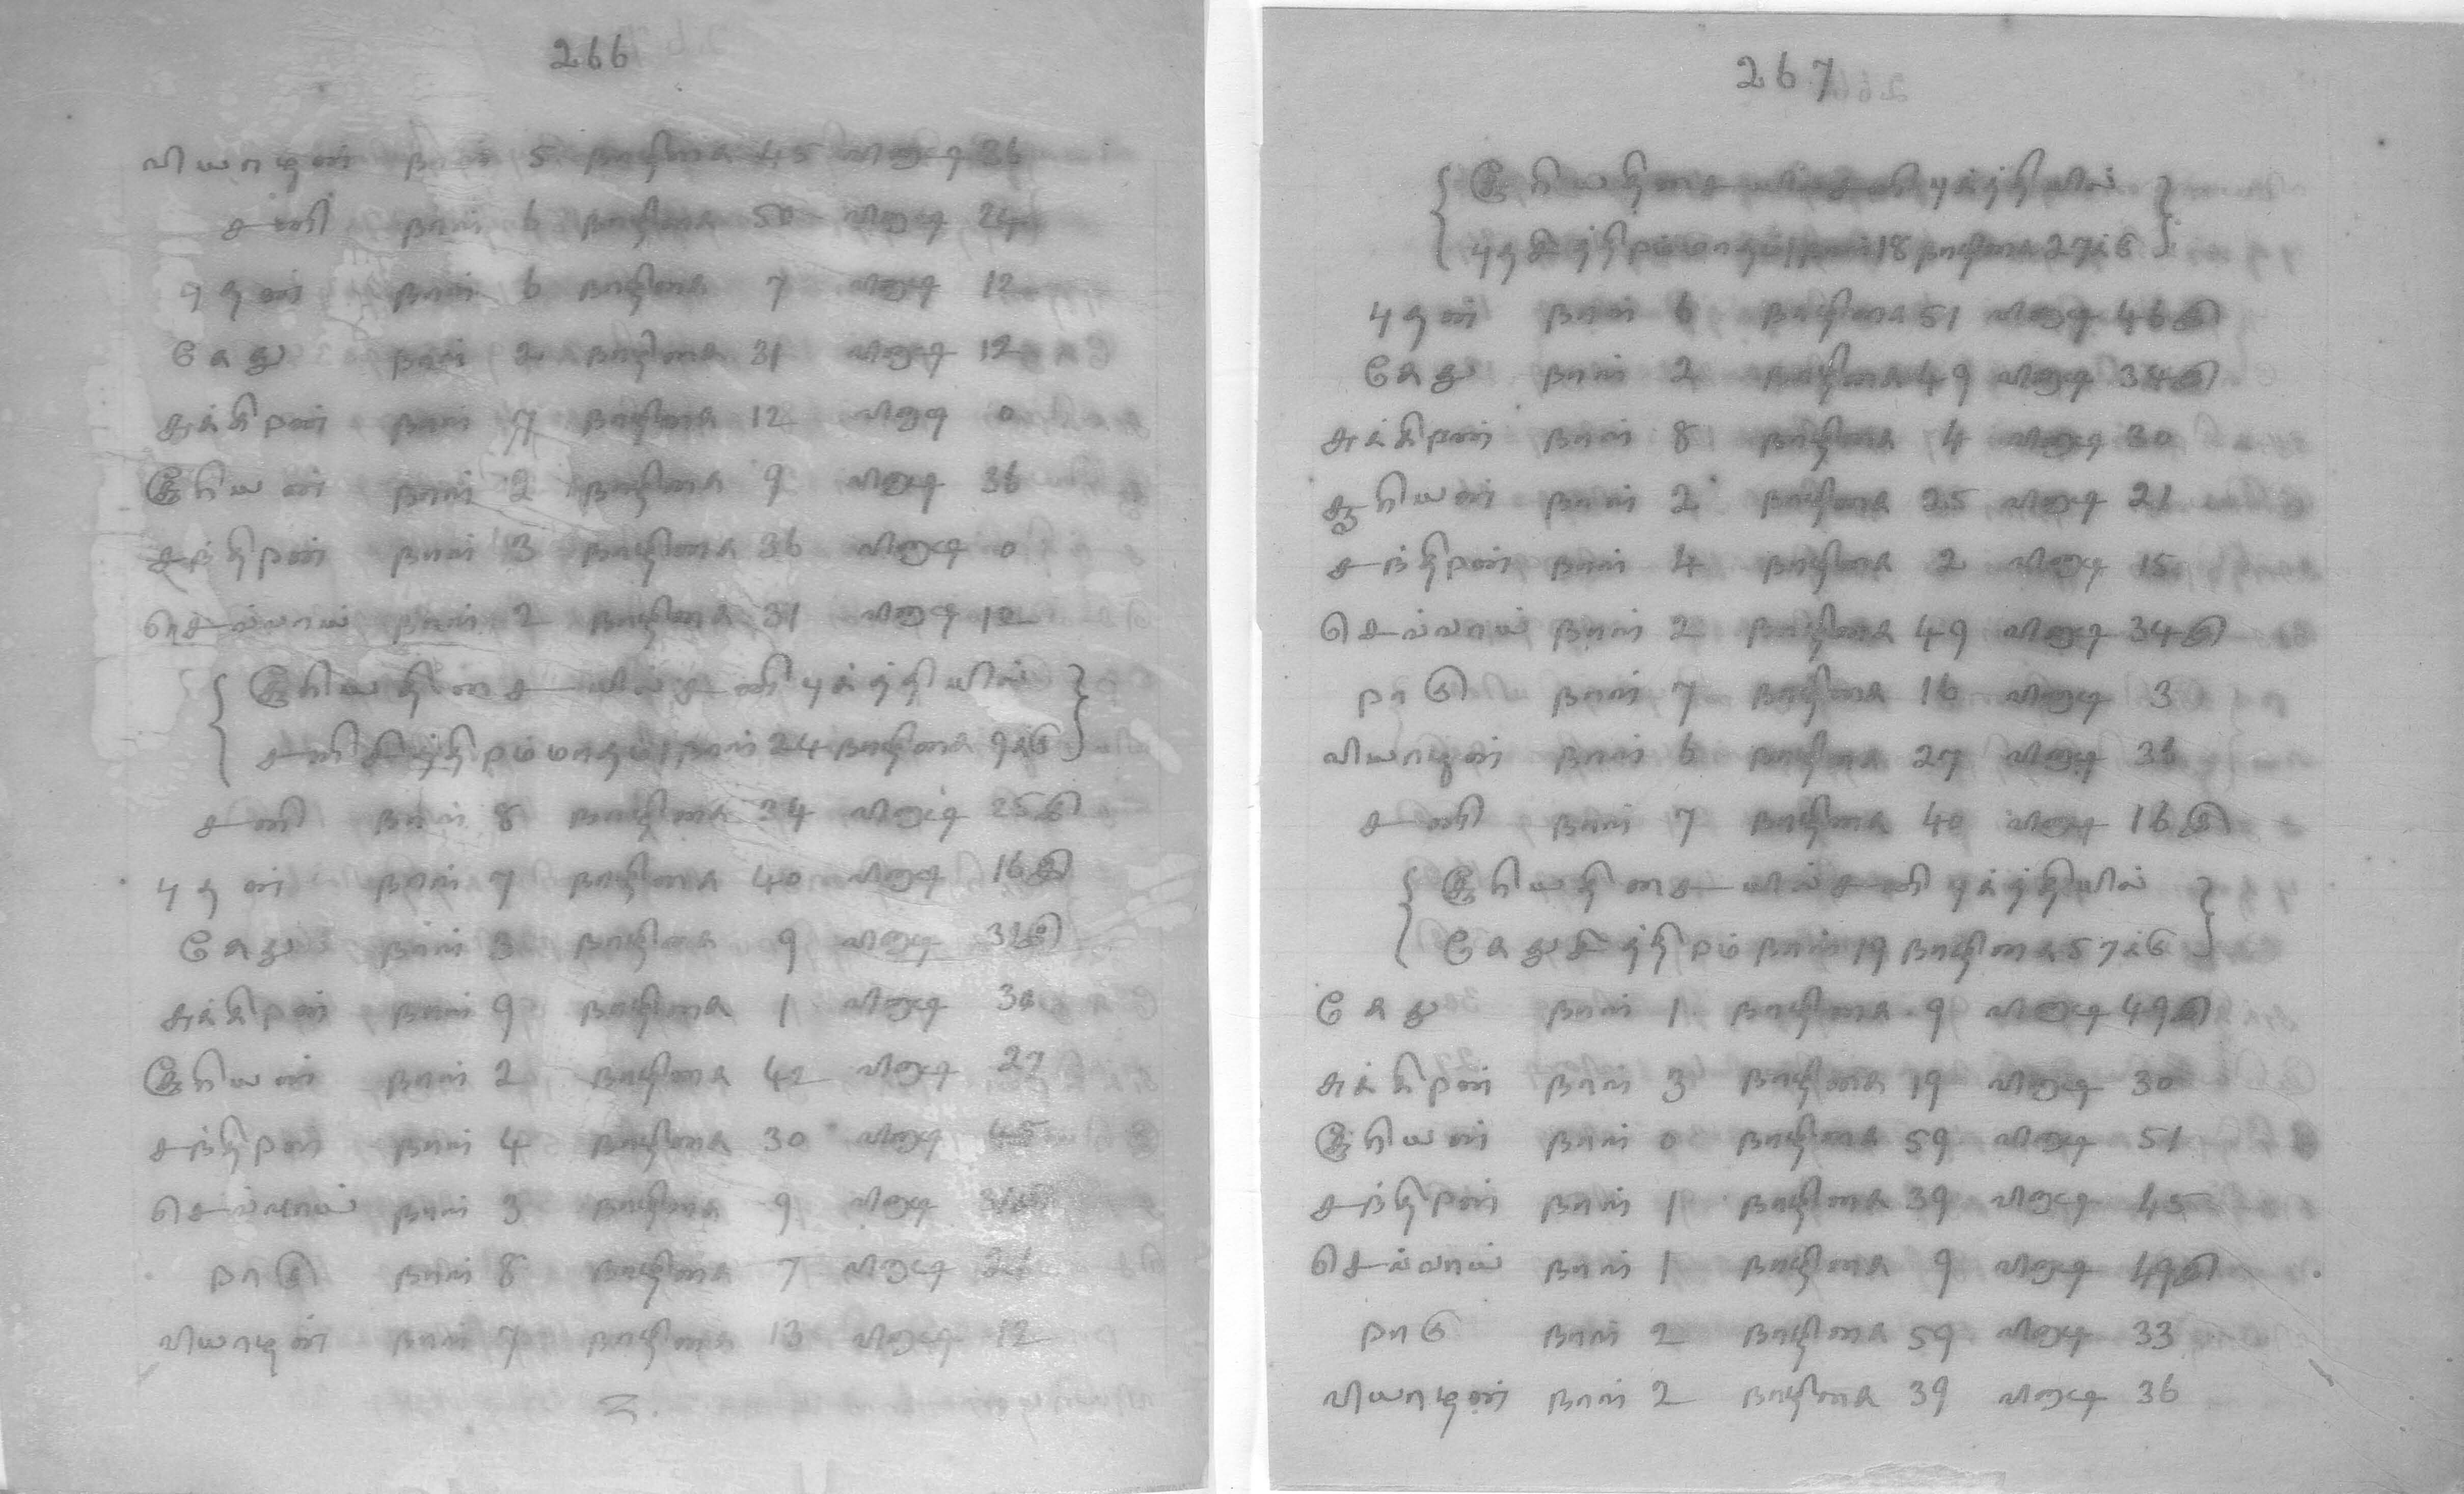 266
வியாழன் நாள் 5 நாழிகை 45 விநாழி 36
சனி நாள் 6 நாழிகை 50 விநாழி 24
புதன் நாள் 6 நாழிகை 7 விநாழி 12
கேது நாள் 2 நாழிகை 31 விநாழி 12
சுக்கிரன் நாள் 7 நாழிகை 12 விநாழி 0
சூரியன் நாள் 2 நாழிகை 9 விநாழி 36
சந்திரன் நாள் 3 நாழிகை 36 விநாழி 0
செவ்வாய் நாள் 2 நாழிகை 31 விநாழி 12
{ சூரியதிசையில்சனிபுத்தியில் }
{ சனிசித்திரம்மாதம்1நாள்24நாழிகை9க்கு }
சனி நாள் 8 நாழிகை 34 விநாழி 25கு
புதன் நாள் 7 நாழிகை 40 விநாழி 16கு
கேது நாள் 3 நாழிகை 9 விநாழி
சுக்கிரன் நாள் 9 நாழிகை 1 விநாழி 30
சூரியன் நாள் 2 நாழிகை 42 விநாழி 27
சந்திரன் நாள் 4 நாழிகை 30 விநாழி 45
செவ்வாய் நாள் 3 நாழிகை 9 விநாழி
ராகு நாள் 8 நாழிகை 7 விநாழி 21
வியாழன் நாள் 7 நாழிகை 13 விநாழி 12
267
{ சூரியதிசையில்சனிபுத்தியில் }
{ புதசித்திரம்மாதம்1நாள்18நாழிகை27க்கு }
புதன் நாள் 6 நாழிகை 51 விநாழி 46கு
கேது நாள் 2 நாழிகை 49 விநாழி 34கு
சுக்கிரன் நாள் 8 நாழிகை 4 விநாழி 30
சூரியன் நாள் 2 நாழிகை 25 விநாழி 21
சந்திரன் நாள் 4 நாழிகை 2 விநாழி 15
செவ்வாய் நாள் 2 நாழிகை 49 விநாழி 34கு
ராகு நாள் 7 நாழிகை 16 விநாழி 3
வியாழன் நாள் 6 நாழிகை 27 விநாழி 36
சனி நாள் 7 நாழிகை 40 விநாழி 16கு
{ சூரியதிசையில்சனிபுத்தியில் }
{ கேதுசித்திரம் நாள்19 நாழிகை57க்கு }
கேது நாள் 1 நாழிகை 9 விநாழி 49கு
சுக்கிரன் நாள் 3 நாழிகை 19 விநாழி 30
சூரியன் நாள் 0 நாழிகை 59 விநாழி 51
சந்திரன் நாள் 1 நாழிகை 39 விநாழி 45
செவ்வாய் நாள் 1 நாழிகை 9 விநாழி 49கு
ராகு நாள் 2 நாழிகை 59 விநாழி 33
வியாழன் நாள் 2 நாழிகை 39 விநாழி 36